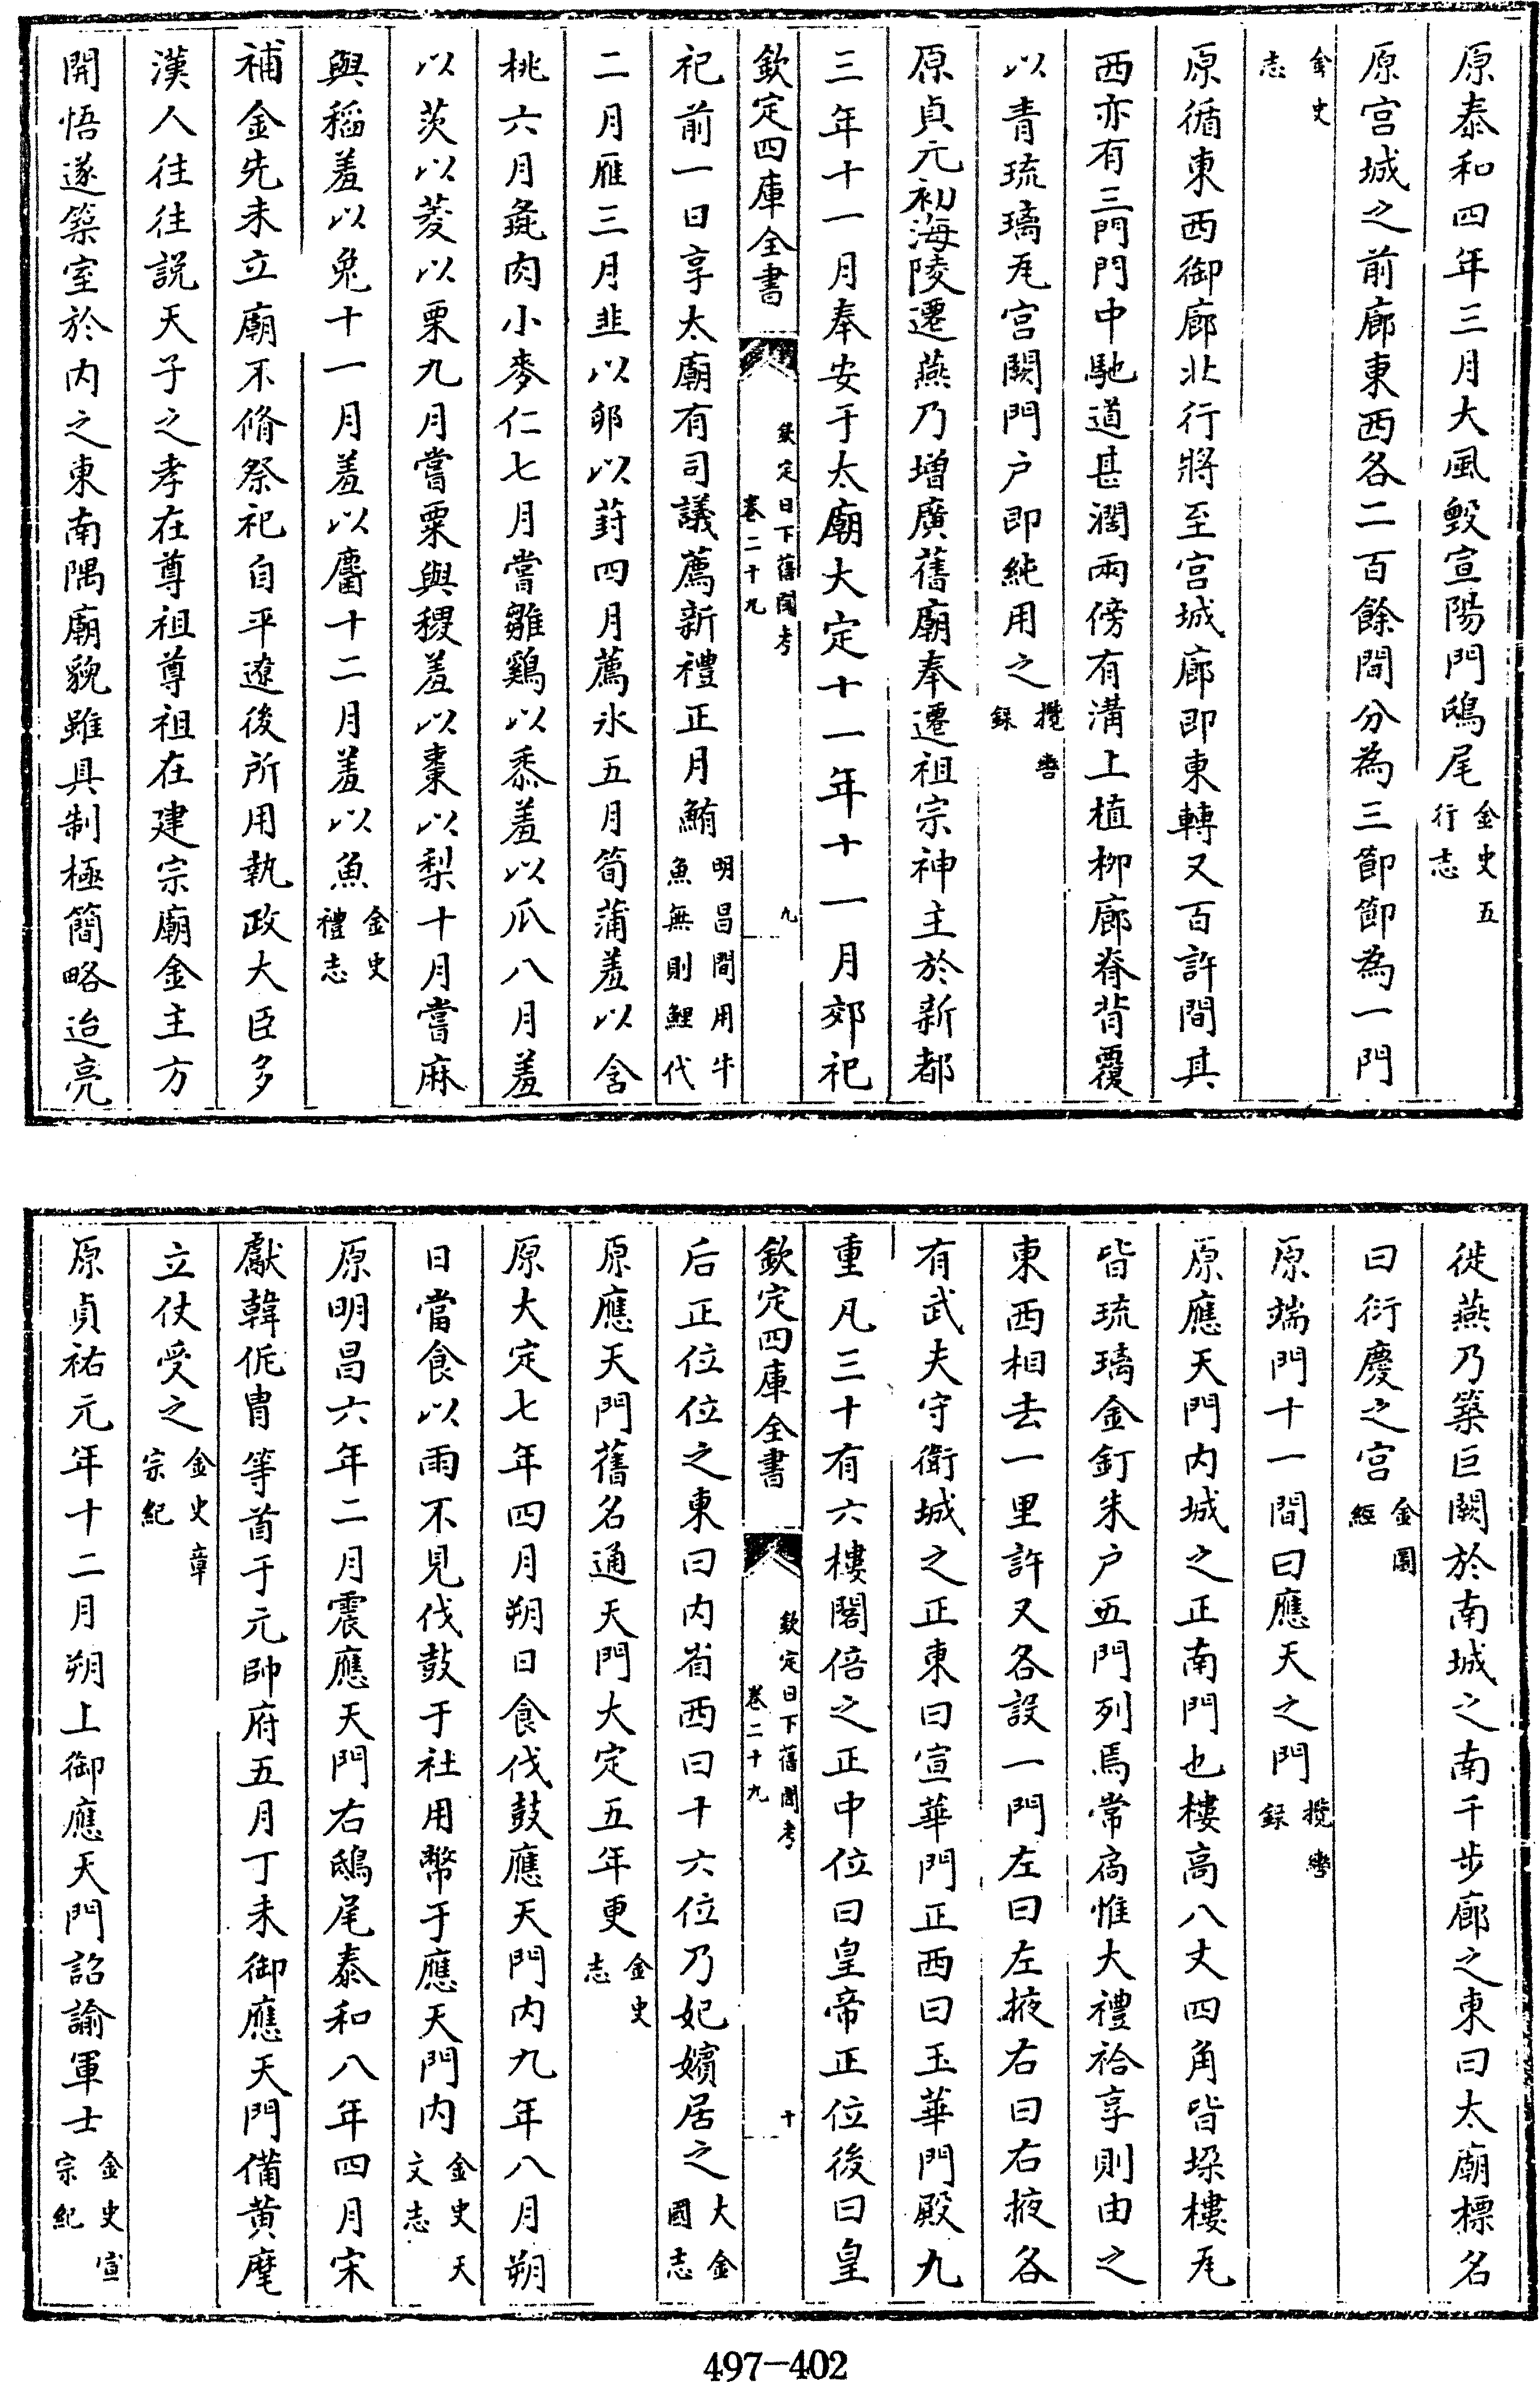 原泰和四年三月大風毀宣陽門鴟尾金史五行志
原宫城之前廊東西各二百餘間分為三節節為一門
金史志
原循東西御廊北行將至宫城廊即東轉又百許間其
西亦有三門門中馳道甚濶兩傍有溝上植柳廊脊皆覆
以青琉璃瓦宫闕門户即純用之攬轡錄
原貞元初海陵遷燕乃增廣舊廟奉遷祖宗神主於新都
三年十一月奉安于太廟大定十一年十一月郊祀
欽定四庫全書 欽定日下舊聞考 卷二十九 九
祀前一日享太廟有司議薦新禮正月鮪明昌間用牛魚無則鯉代
二月雁三月韭以卵以葑四月薦氷五月筍蒲羞以含
桃六月彘肉小麥仁七月嘗雛鷄以黍羞以瓜八月羞
以茨以菱以栗九月嘗粟與稷羞以棗以梨十月嘗麻
與稻羞以兔十一月羞以麕十二月羞以魚金史禮志
補金先未立廟不脩祭祀自平遼後所用執政大臣多
漢人往往説天子之孝在尊祖尊祖在建宗廟金主方
開悟遂築室於内之東南隅廟貌雖具制極簡略迨亮
徙燕乃築巨闕於南城之南千步廊之東曰太廟標名
曰衍慶之宫金圖經
原端門十一間曰應天之門攬轡錄
原應天門内城之正南門也樓高八丈四角皆垜樓瓦
皆琉璃金釘朱户五門列焉常扃惟大禮祫享則由之
東西相去一里許又各設一門左曰左掖右曰右掖各
有武夫守衛城之正東曰宣華門正西曰玉華門殿九
重凡三十有六樓閣倍之正中位曰皇帝正位後曰皇
欽定四庫全書 欽定日下舊聞考 卷二十九 十
后正位位之東曰内省西曰十六位乃妃嬪居之大金國志
原應天門舊名通天門大定五年更金史志
原大定七年四月朔日食伐鼓應天門内九年八月朔
日當食以雨不見伐鼓于社用幣于應天門内金史天文志
原明昌六年二月震應天門右鴟尾泰和八年四月宋
獻韓侂冑等首于元帥府五月丁未御應天門備黄麾
立仗受之金史章宗紀
原貞祐元年十二月朔上御應天門詔諭軍士金史宣宗紀
497-402